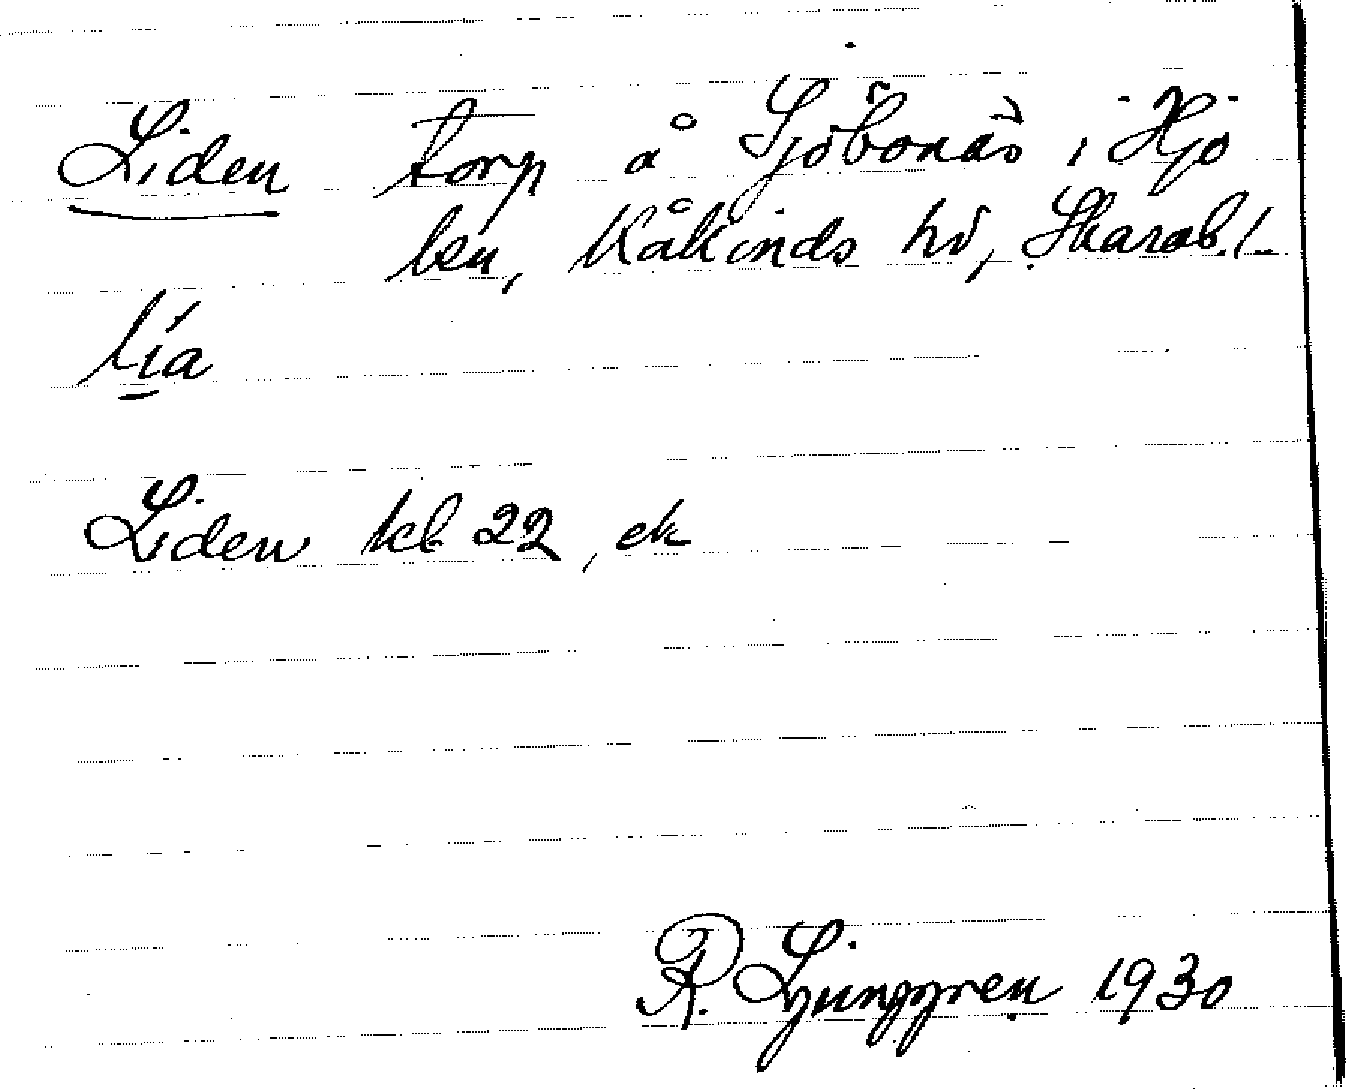 Liden torp å Sjöbonäs i Hjo
lsn, Kåkinds hd, Skarab. l.
lía
Liden kb 22, ek
R. Ljunggren 1930